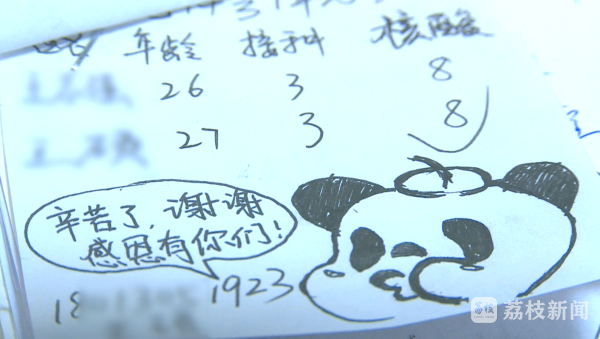 年龄 接种 核酸
26 3 8
27 3 8
辛苦了,谢谢
感恩有你们!
18 1923
荔枝新闻